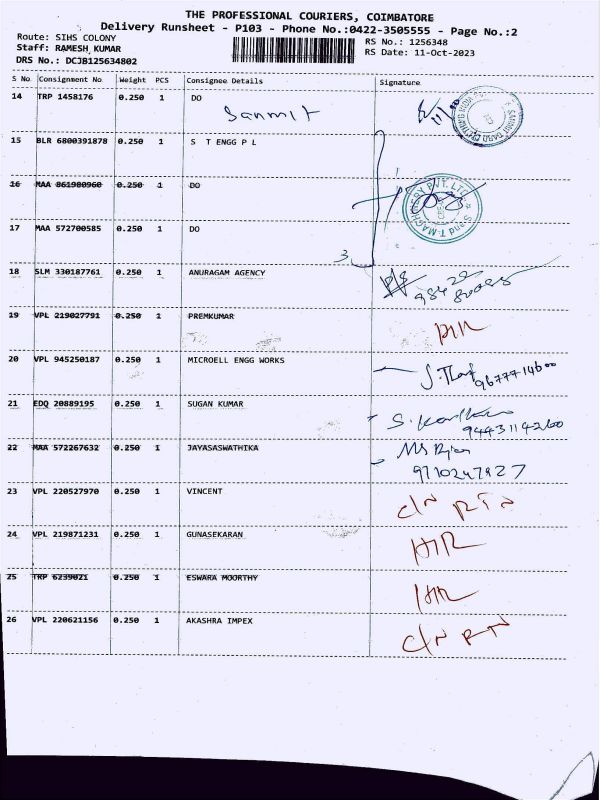 THE PROFESSIONAL COURIERS, COIMBATORE
Delivery Runsheet - P103 - Phone No.:0422-3505555 - Page No.:2
Route: SIHS COLONY
Staff: RAMESH KUMAR
DRS No.: DCJB125634802
RS No.: 1256348
RS Date: 11-Oct-2023
S No Consignment No Weight PCS Consignee Details Signature
14 TRP 1458176 0.250 1 DO
Sanmit
15 BLR 6800391878 0.250 1 S T ENGG P L
16 MAA 861900960 0.250 1 DO
17 MAA 572700585 0.250 1 DO
3
18 SLM 330187761 0.250 1 ANURAGAM AGENCY
19 VPL 219027791 0.250 1 PREMKUMAR
20 VPL 945250187 0.250 1 MICROELL ENGG WORKS
9677714600
21 EDQ 20889195 0.250 1 SUGAN KUMAR
22 MAA 572267632 0.250 1 JAYASASWATHIKA
9710247927
23 VPL 220527970 0.250 1 VINCENT
C/N RTN
24 VPL 219871231 0.250 1 GUNASEKARAN
25 TRP 6239021 0.250 1 ESWARA MOORTHY
26 VPL 220621156 0.250 1 AKASHRA IMPEX
C/N RTN